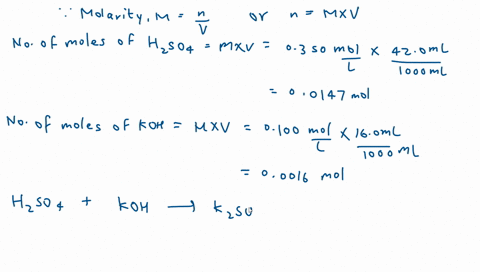 ∵ Molarity, M = n/V or n = M×V
No. of moles of H₂SO₄ = M×V = 0.350 mol/L × 42.0mL/1000mL
= 0.0147 mol
No. of moles of KOH = M×V = 0.100 mol/L × 16.0mL/1000 mL
= 0.0016 mol
H₂SO₄ + KOH → K₂SO